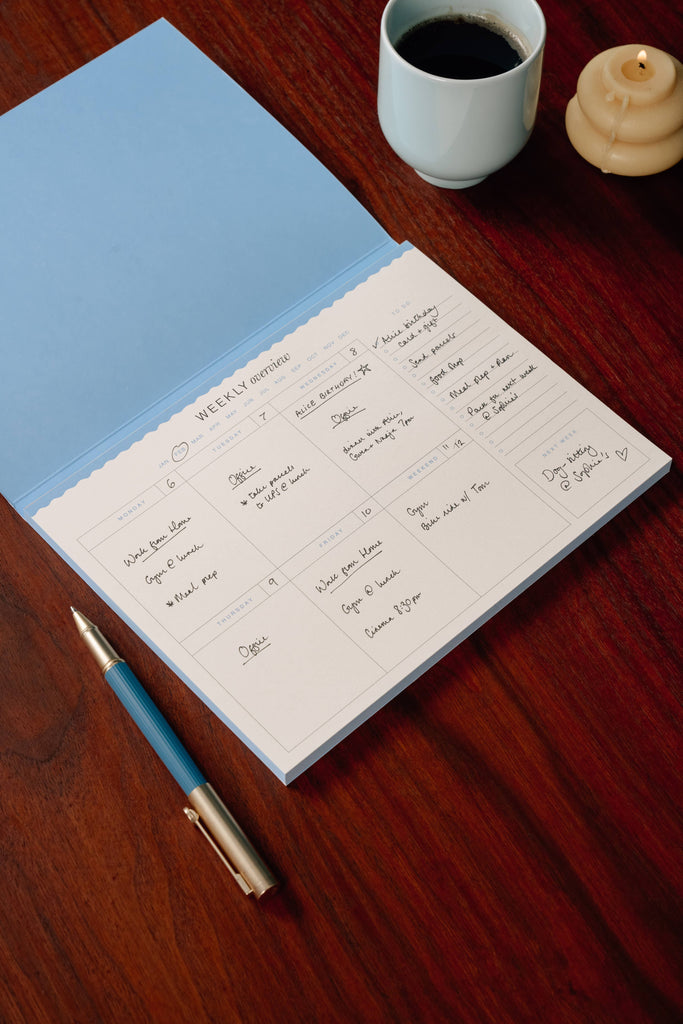 WEEKLY overview
JAN FEB MAR APR MAY JUN JUL AUG SEP OCT NOV DEC
MONDAY 6
Work from Home
Gym @ lunch
* Meal prep
TUESDAY 7
Office
* take parcels
to UPS @ lunch
WEDNESDAY 8
ALICE BIRTHDAY! ☆
Office
dinner with Alice,
+ Nadja 7pm
THURSDAY 9
Office
FRIDAY 10
Work from Home
Gym @ lunch
Cinema 8:30pm
WEEKEND 11 + 12
Gym
Bike ride w/ Tom
TO DO
✓ Alice birthday
card + gift
Send parcels
food shop
Meal prep + plan
Pack for next week
@ Sophie's
NEXT WEEK
Dog-sitting
@ Sophie's ♡